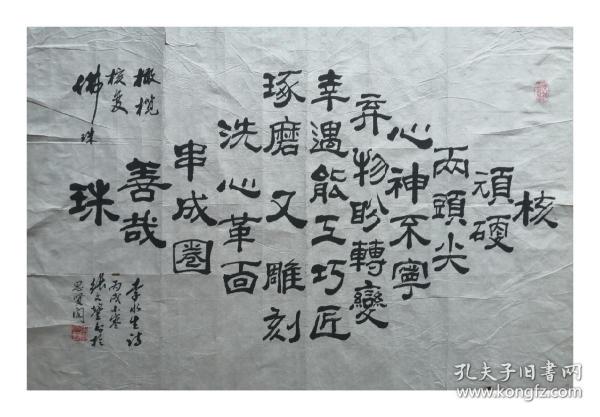 核
頑硬
兩頭尖
心神不寧
弃物盼轉變
幸遇能工巧匠
琢磨又雕刻
洗心革面
串成圈
善哉
珠
橄欖
核變
佛珠
李水生詩
丙戌小寒
張文鑒書於
思賢閣
孔夫子旧书网
www.kongfz.com